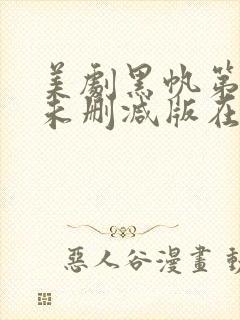 美劇黑帆第
未刪減版在
惡人谷漫畫 動